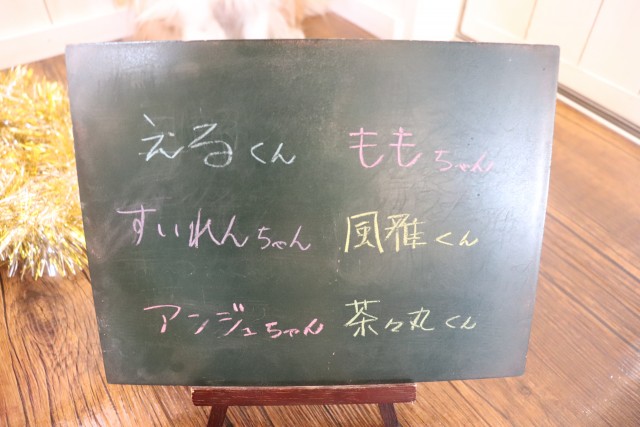 えるくん ももちゃん
すいれんちゃん 風雅くん
アンジュちゃん 茶々丸くん